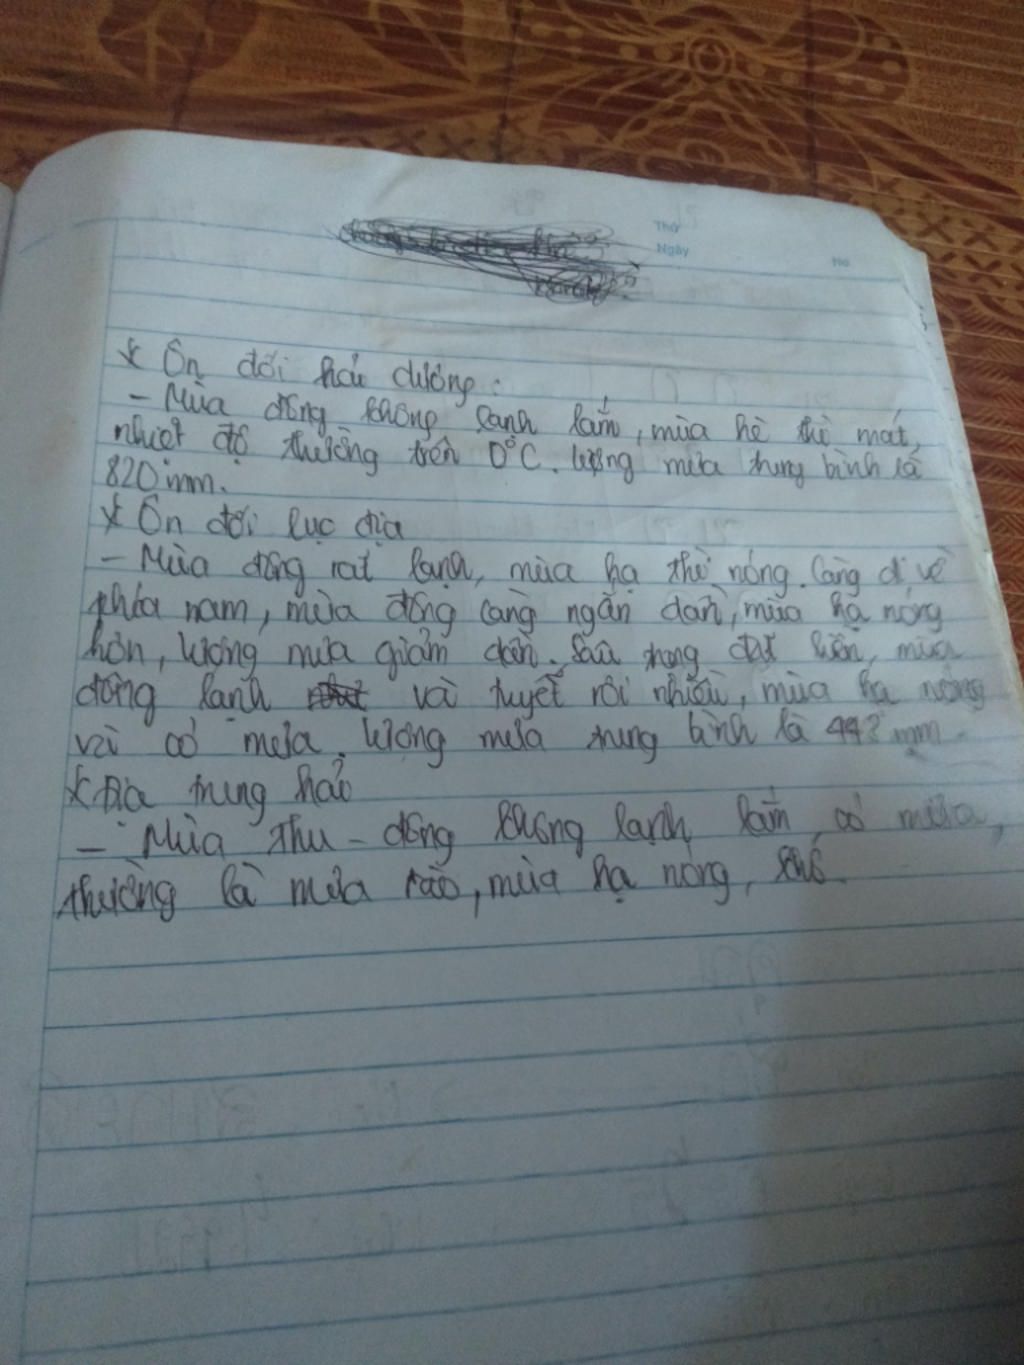 Thứ
Ngày
No
* Ôn đới hải dương:
- Mùa đông không lạnh lắm, mùa hè thì mát,
nhiệt độ thường trên 0°C. lượng mưa trung bình là
820 mm.
* Ôn đới lục địa
- Mùa đông rất lạnh, mùa hạ thì nóng. Càng đi về
phía nam, mùa đông càng ngắn dần, mùa hạ nóng
hơn, lượng mưa giảm dần. Sâu trong đất liền, mùa
đông lạnh và tuyết rơi nhiều, mùa hạ nóng
và có mưa. lượng mưa trung bình là 443 mm.
* Địa trung hải
- Mùa thu - đông không lạnh lắm, có mưa,
thường là mưa rào, mùa hạ nóng, khô.